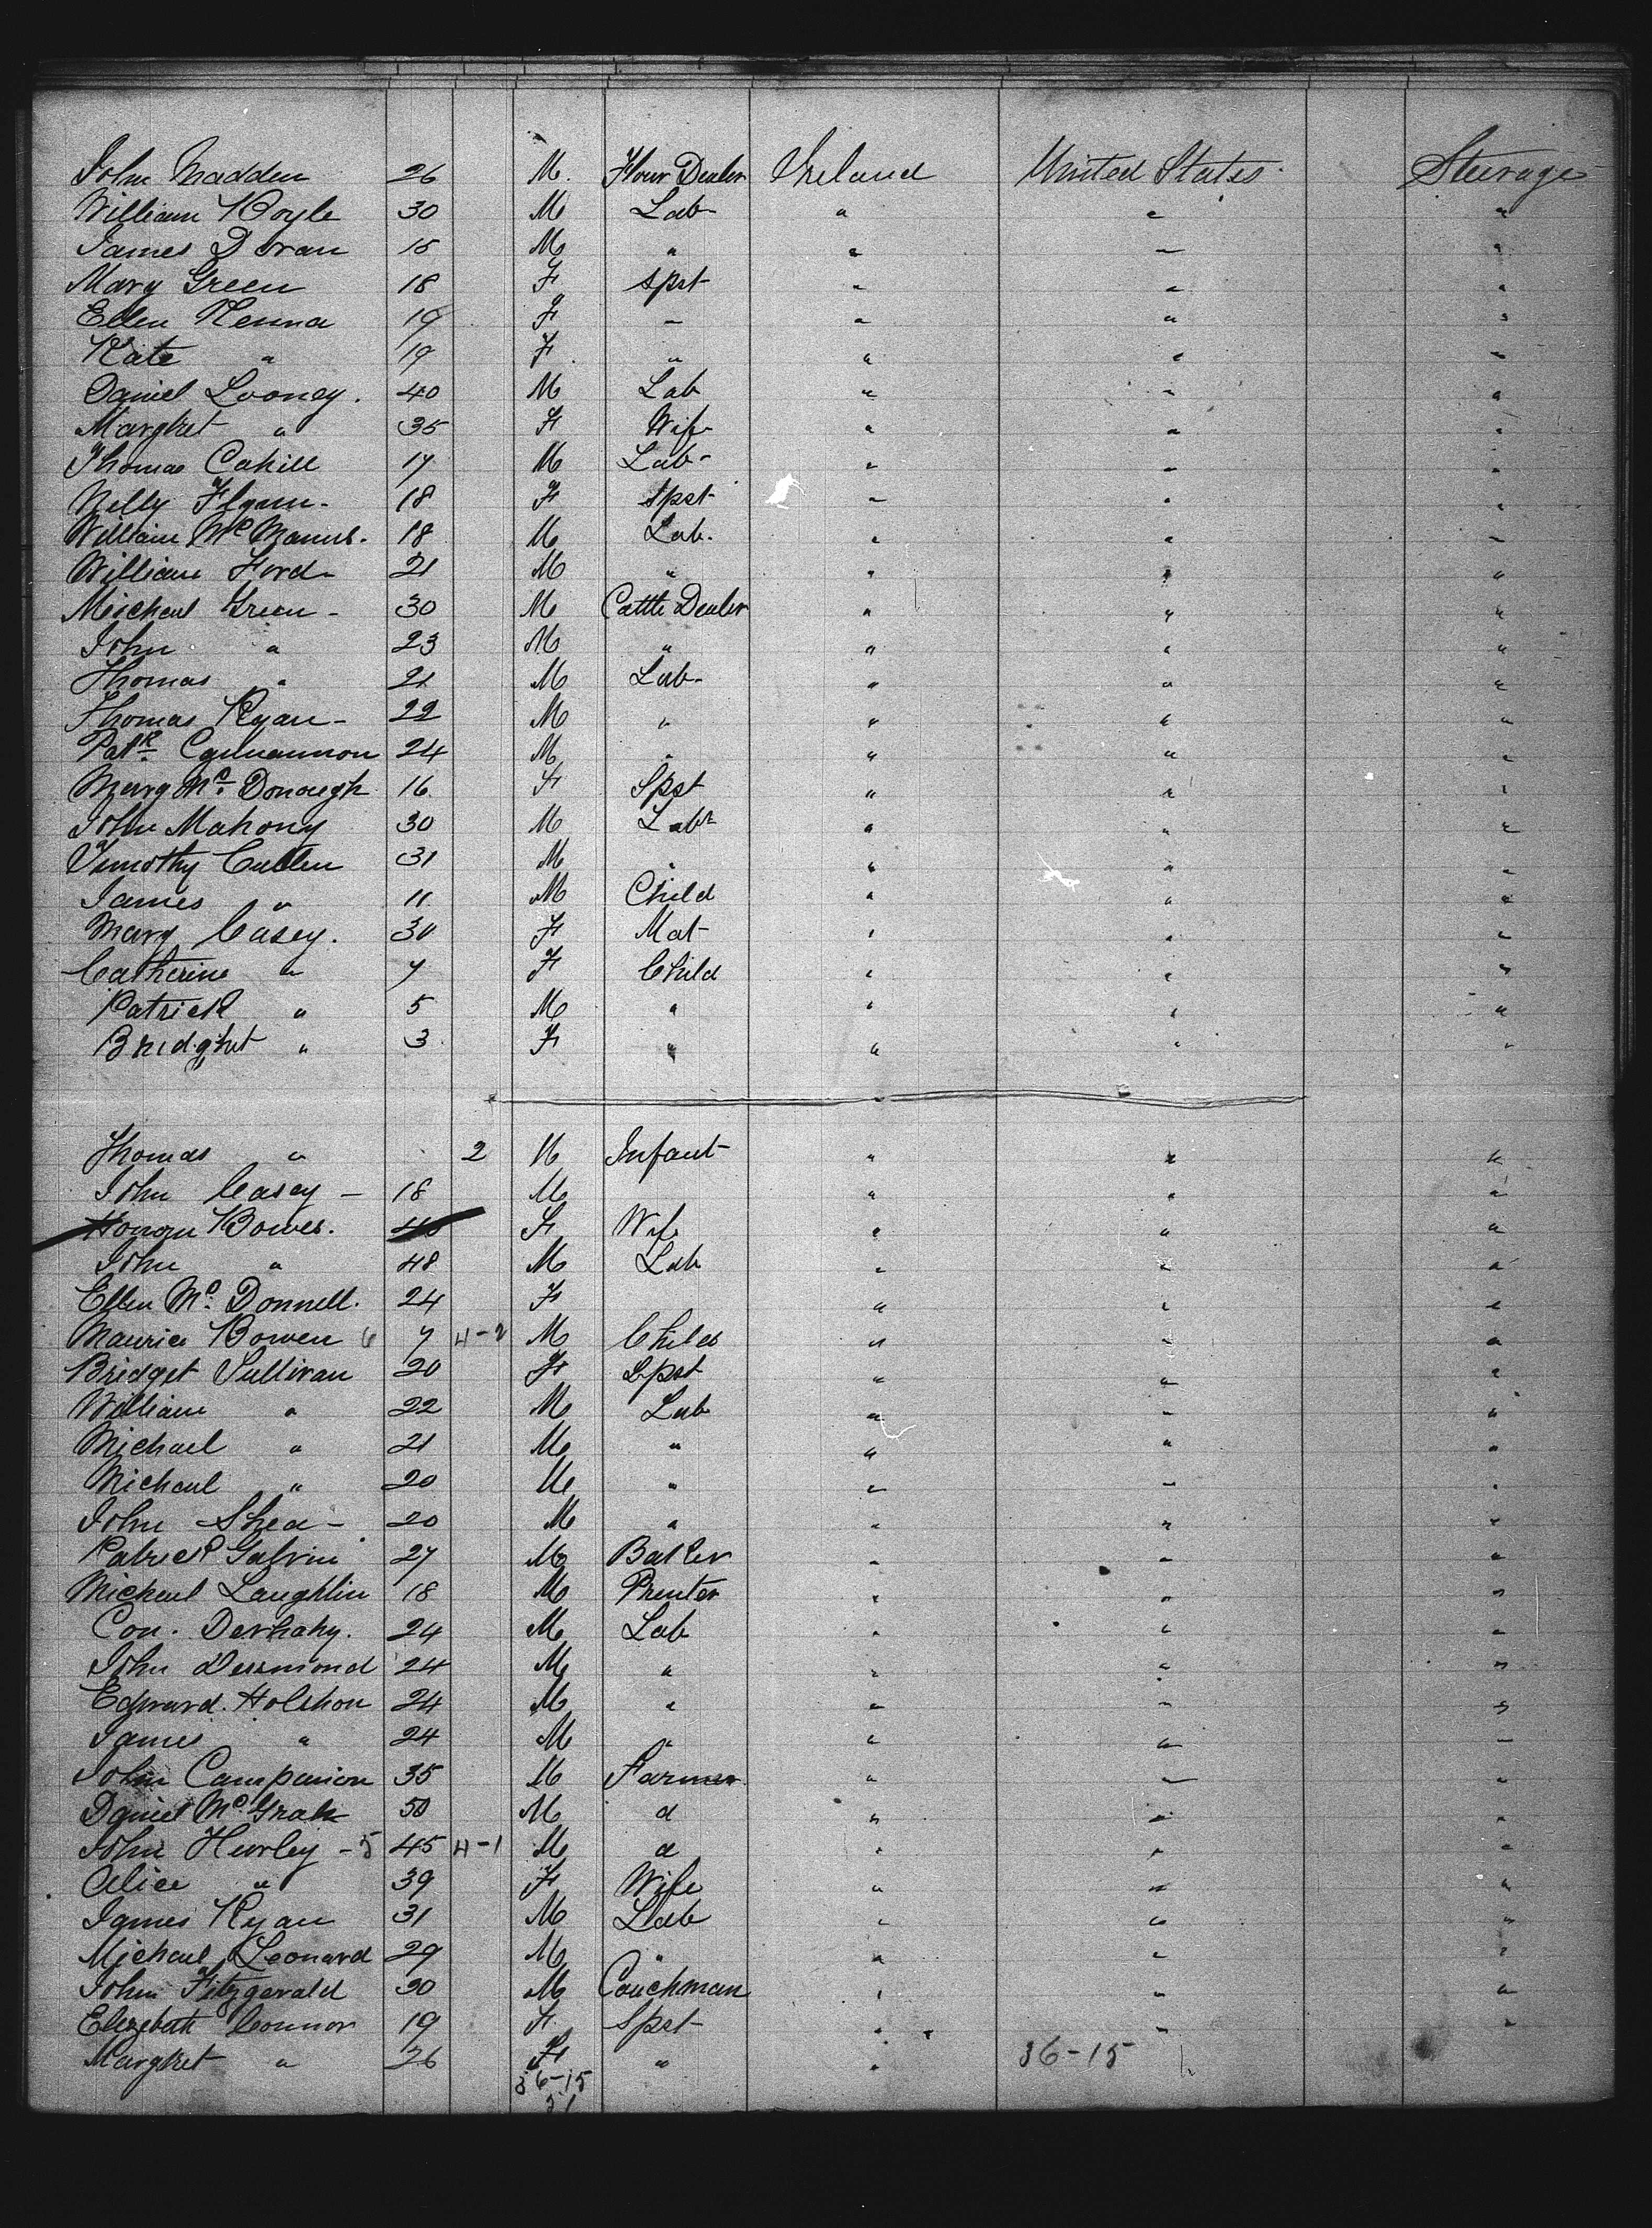 John Madden 26 M. Flour Dealer Ireland United States Steerage
William Boyle 30 M Lab " " "
James Doran 15 M " " " "
Mary Green 18 F Spst " " "
Ellen Kenna 19 F " " " "
Kate " 19 F " " " "
Daniel Looney. 40 M Lab " " "
Marghet " 35 F Wife " " "
Thomas Cahill 17 M Lab " " "
Nelly 18 F Spst " " "
William Mc Manus. 18 M Lab. " " "
William Ford 21 M " " " "
Michael Green 30 M Cattle Dealer " " "
John " 23 M " " " "
Thomas " 21 M Lab " " "
Thomas Ryan 22 M " " " "
Patk 24 M " " " "
Mary Mc Donaugh 16 F Spst " " "
John Mahony 30 M Labr " " "
Timothy Cullen 31 M " " " "
James " 11 M Child " " "
Mary Casey. 30 F Mat " " "
Catherine " 7 F Child " " "
Patrick " 5 M " " " "
Bridghet " 3 F " " " "
Thomas " 2 M Infant " " "
John Casey 18 M " " "
Honora Bowes. 40 F Wife " " "
John " 48 M Lab " " "
Ellen Mc Donnell. 24 F " " "
Maurice Bowen 6 7 4-2 M Child " " "
Bridget Sullivan 20 F Spst " " "
William " 22 M Lab " " "
Michael " 21 M " " " "
Michael " 20 M " " " "
John Shea 20 M " " " "
Patrick Galvin 27 M Baker " " "
Michael Laughlin 18 M Prenter " " "
Con. 24 M Lab " " "
John Desmond 24 M " " " "
Edward. Holshon 24 M " " " "
James " 24 M " " " "
John Campanion 35 M Farmer " " "
Daniel Mc Grath 50 M " " " "
John Hurley - 5 45 4-1 M " " " "
Alice " 39 F Wife " " "
James Ryan 31 M Lab " " "
Michael Leonard 29 M " " " "
John Fitzgerald 30 M Coachman " " "
Elezebeth Connor 19 F Spst " " "
Marghet " 26 F " " 36-15
36-15